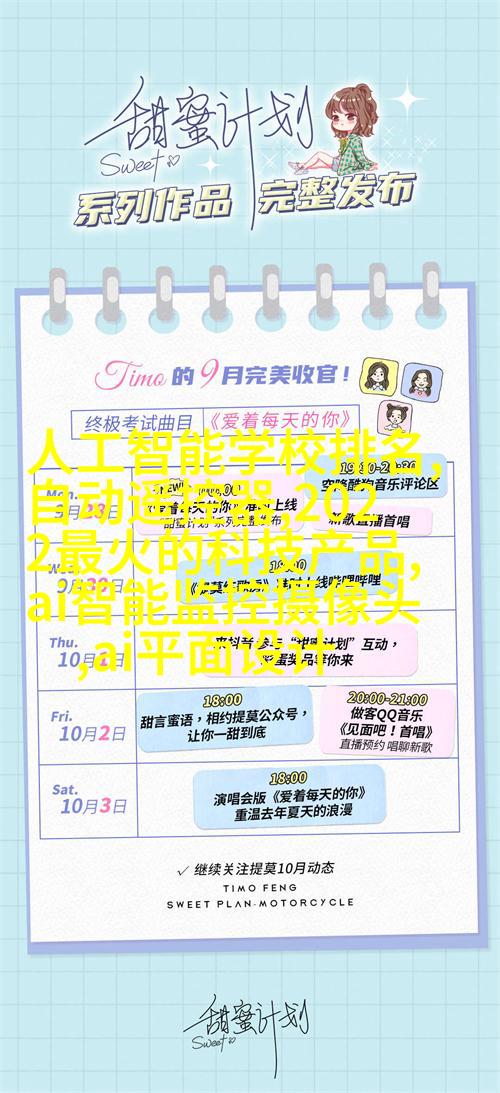 甜蜜计划
Sweet
系列作品 完整发布
Timo的9月完美收官！
终极考试曲目《爱着每天的你》
人工智能学校排名,
自动遥控器,202
2最火的科技产品,
ai智能监控摄像头
,ai平面设计
空降酷狗音乐评论区
新歌直播首唱
18:00
Thu.
10月1日
Fri.
10月2日
18:00
甜言蜜语，相约提莫公众号，
让你一甜到底
20:00-21:00
做客QQ音乐
《见面吧！首唱》
直播预约 唱聊新歌
Sat.
10月3日
18:00
演唱会版《爱着每天的你》
重温去年夏天的浪漫
✓ 继续关注提莫10月动态
TIMO FENG
SWEET PLAN-MOTORCYCLE
甜蜜计划
Sweet